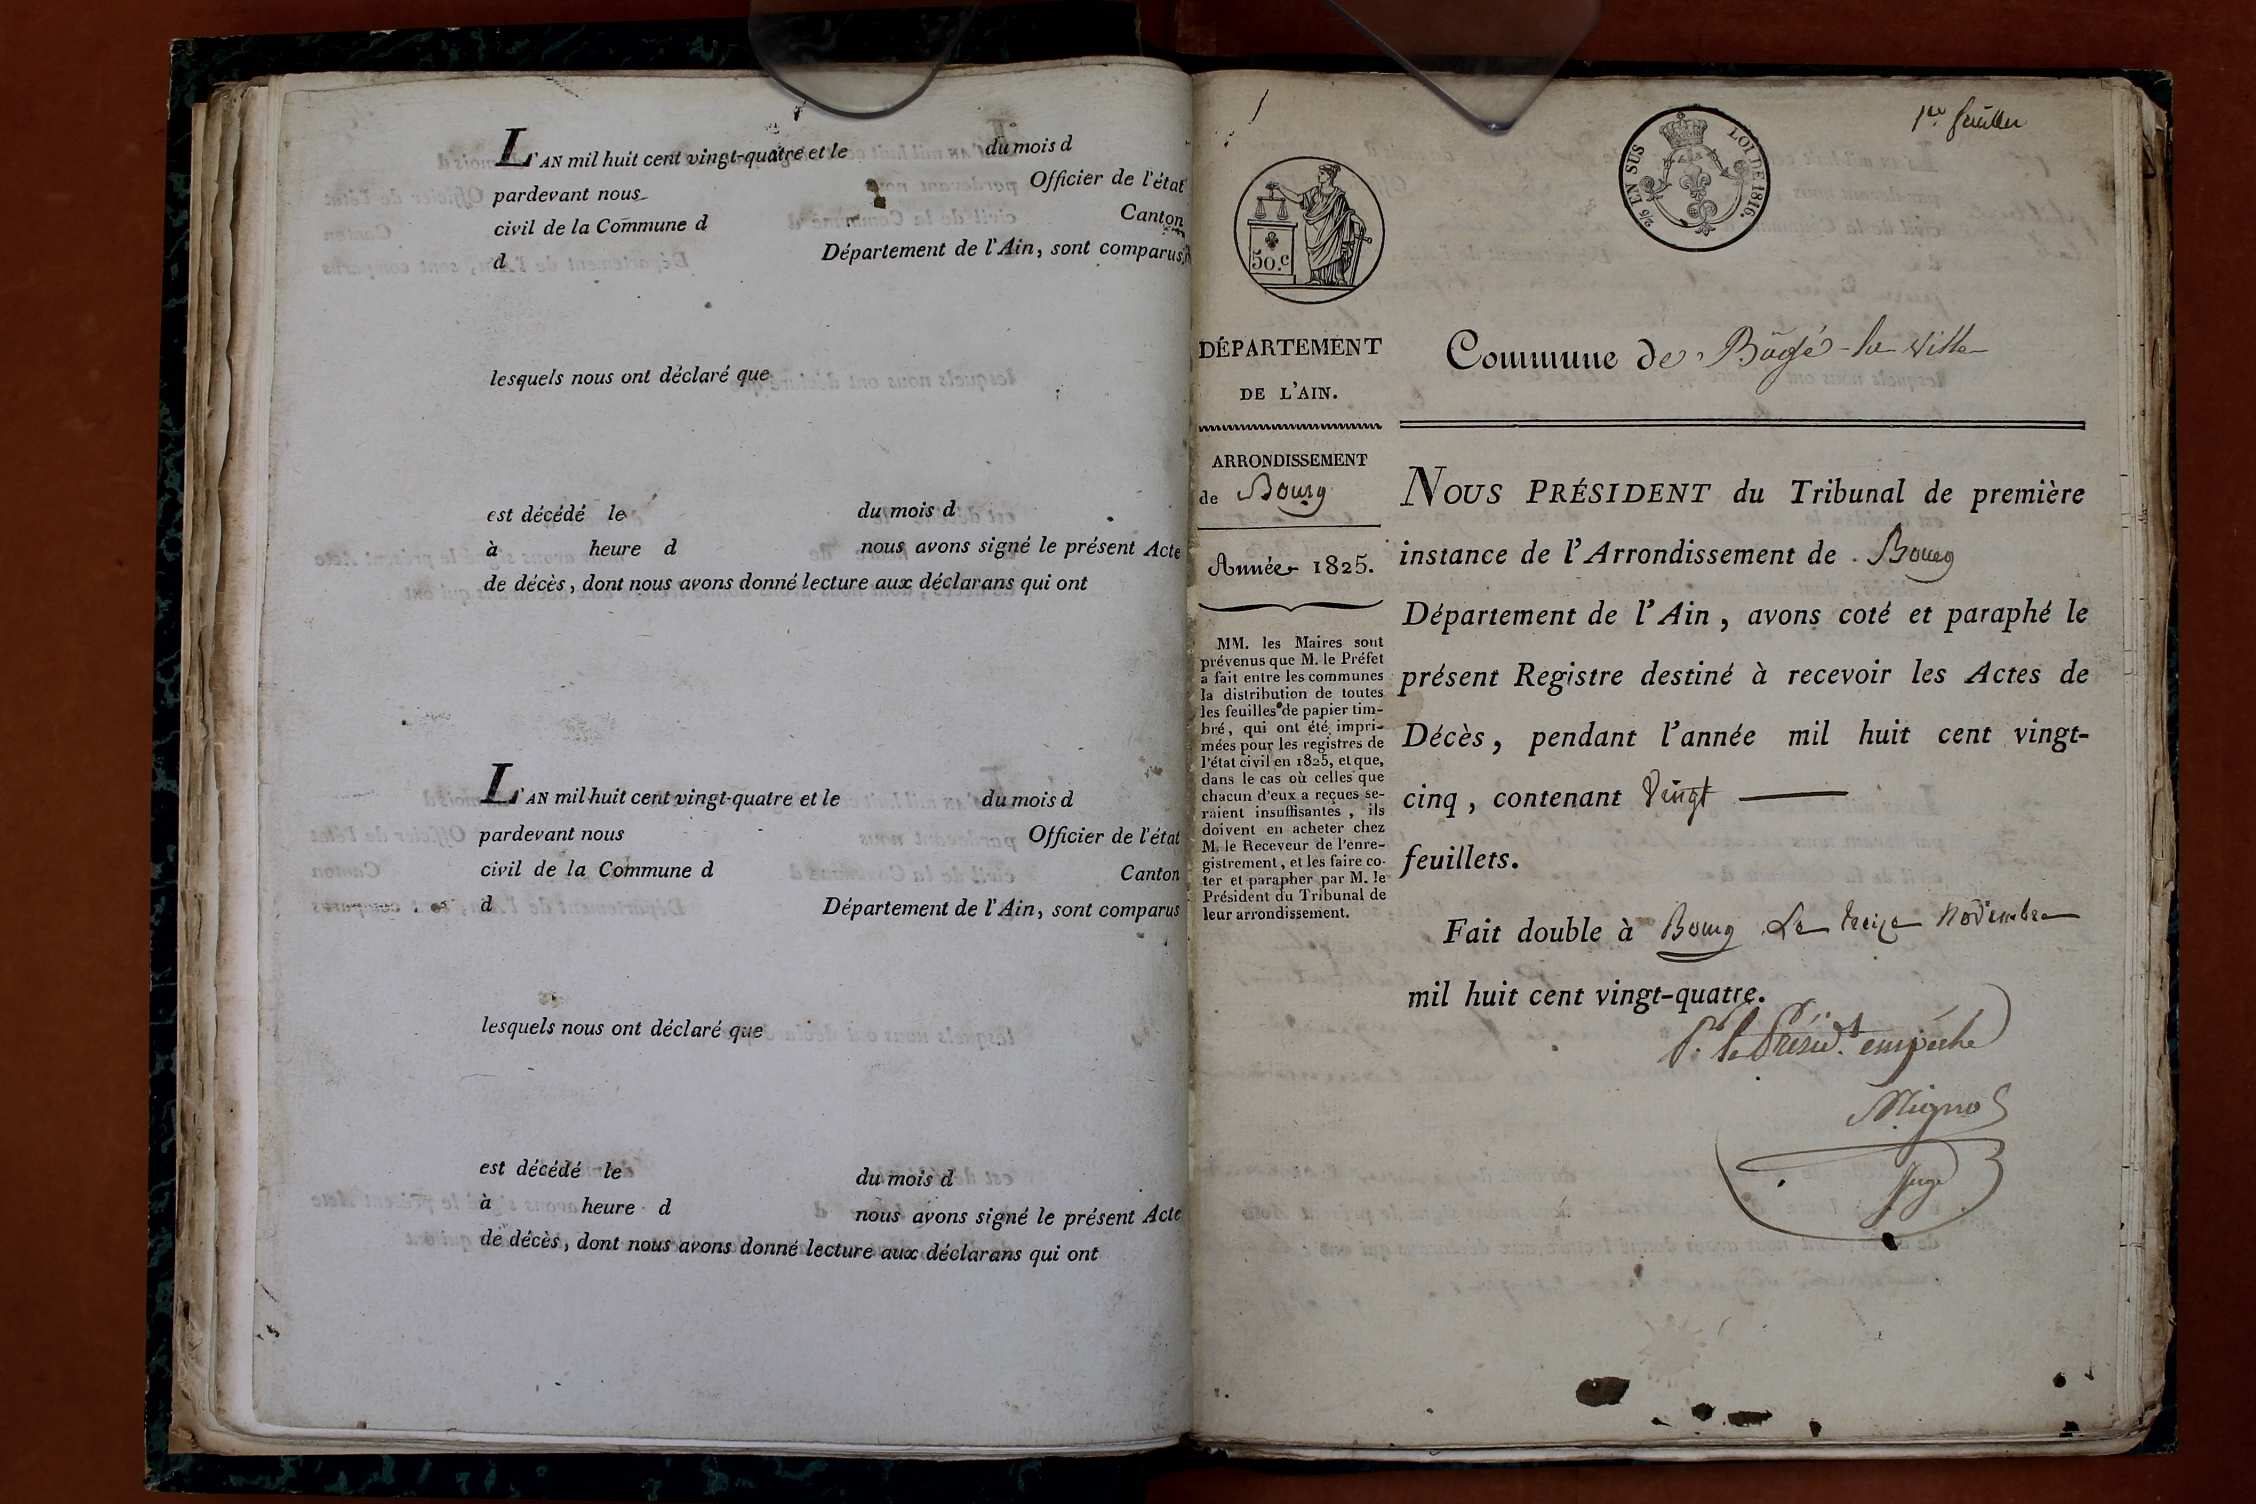 L'AN mil huit cent vingt-quatre et le du mois d
pardevant nous Officier de l'état
civil de la Commune d Canton
d Département de l'Ain, sont comparus
lesquels nous ont déclaré que
est décédé le du mois d
à heure d nous avons signé le présent Acte
de décès, dont nous avons donné lecture aux déclarans qui ont
L'AN mil huit cent vingt-quatre et le du mois d
pardevant nous Officier de l'état
civil de la Commune d Canton
d Département de l'Ain, sont comparus
lesquels nous ont déclaré que
est décédé le du mois d
à heure d nous avons signé le présent Acte
de décès, dont nous avons donné lecture aux déclarans qui ont
1er feuillet
EN SUS LOI DE 1816.
50.c
DÉPARTEMENT
DE L'AIN.
ARRONDISSEMENT
de Bourg
Année 1825.
MM. les Maires sont
prévenus que M. le Préfet
a fait entre les communes
la distribution de toutes
les feuilles de papier tim-
bré, qui ont été impri-
mées pour les registres de
l'état civil en 1825, et que,
dans le cas où celles que
chacun d'eux a reçues se-
raient insuffisantes, ils
doivent en acheter chez
M. le Receveur de l'enre-
gistrement, et les faire co-
ter et parapher par M. le
Président du Tribunal de
leur arrondissement.
Commune de Bâgé-la-ville
NOUS PRÉSIDENT du Tribunal de première
instance de l'Arrondissement de Bourg
Département de l'Ain, avons coté et paraphé le
présent Registre destiné à recevoir les Actes de
Décès, pendant l'année mil huit cent vingt-
cinq, contenant Vingt
feuillets.
Fait double à Bourg Le treize Novembre
mil huit cent vingt-quatre.
Pr. le Présid.t empêché
Juge